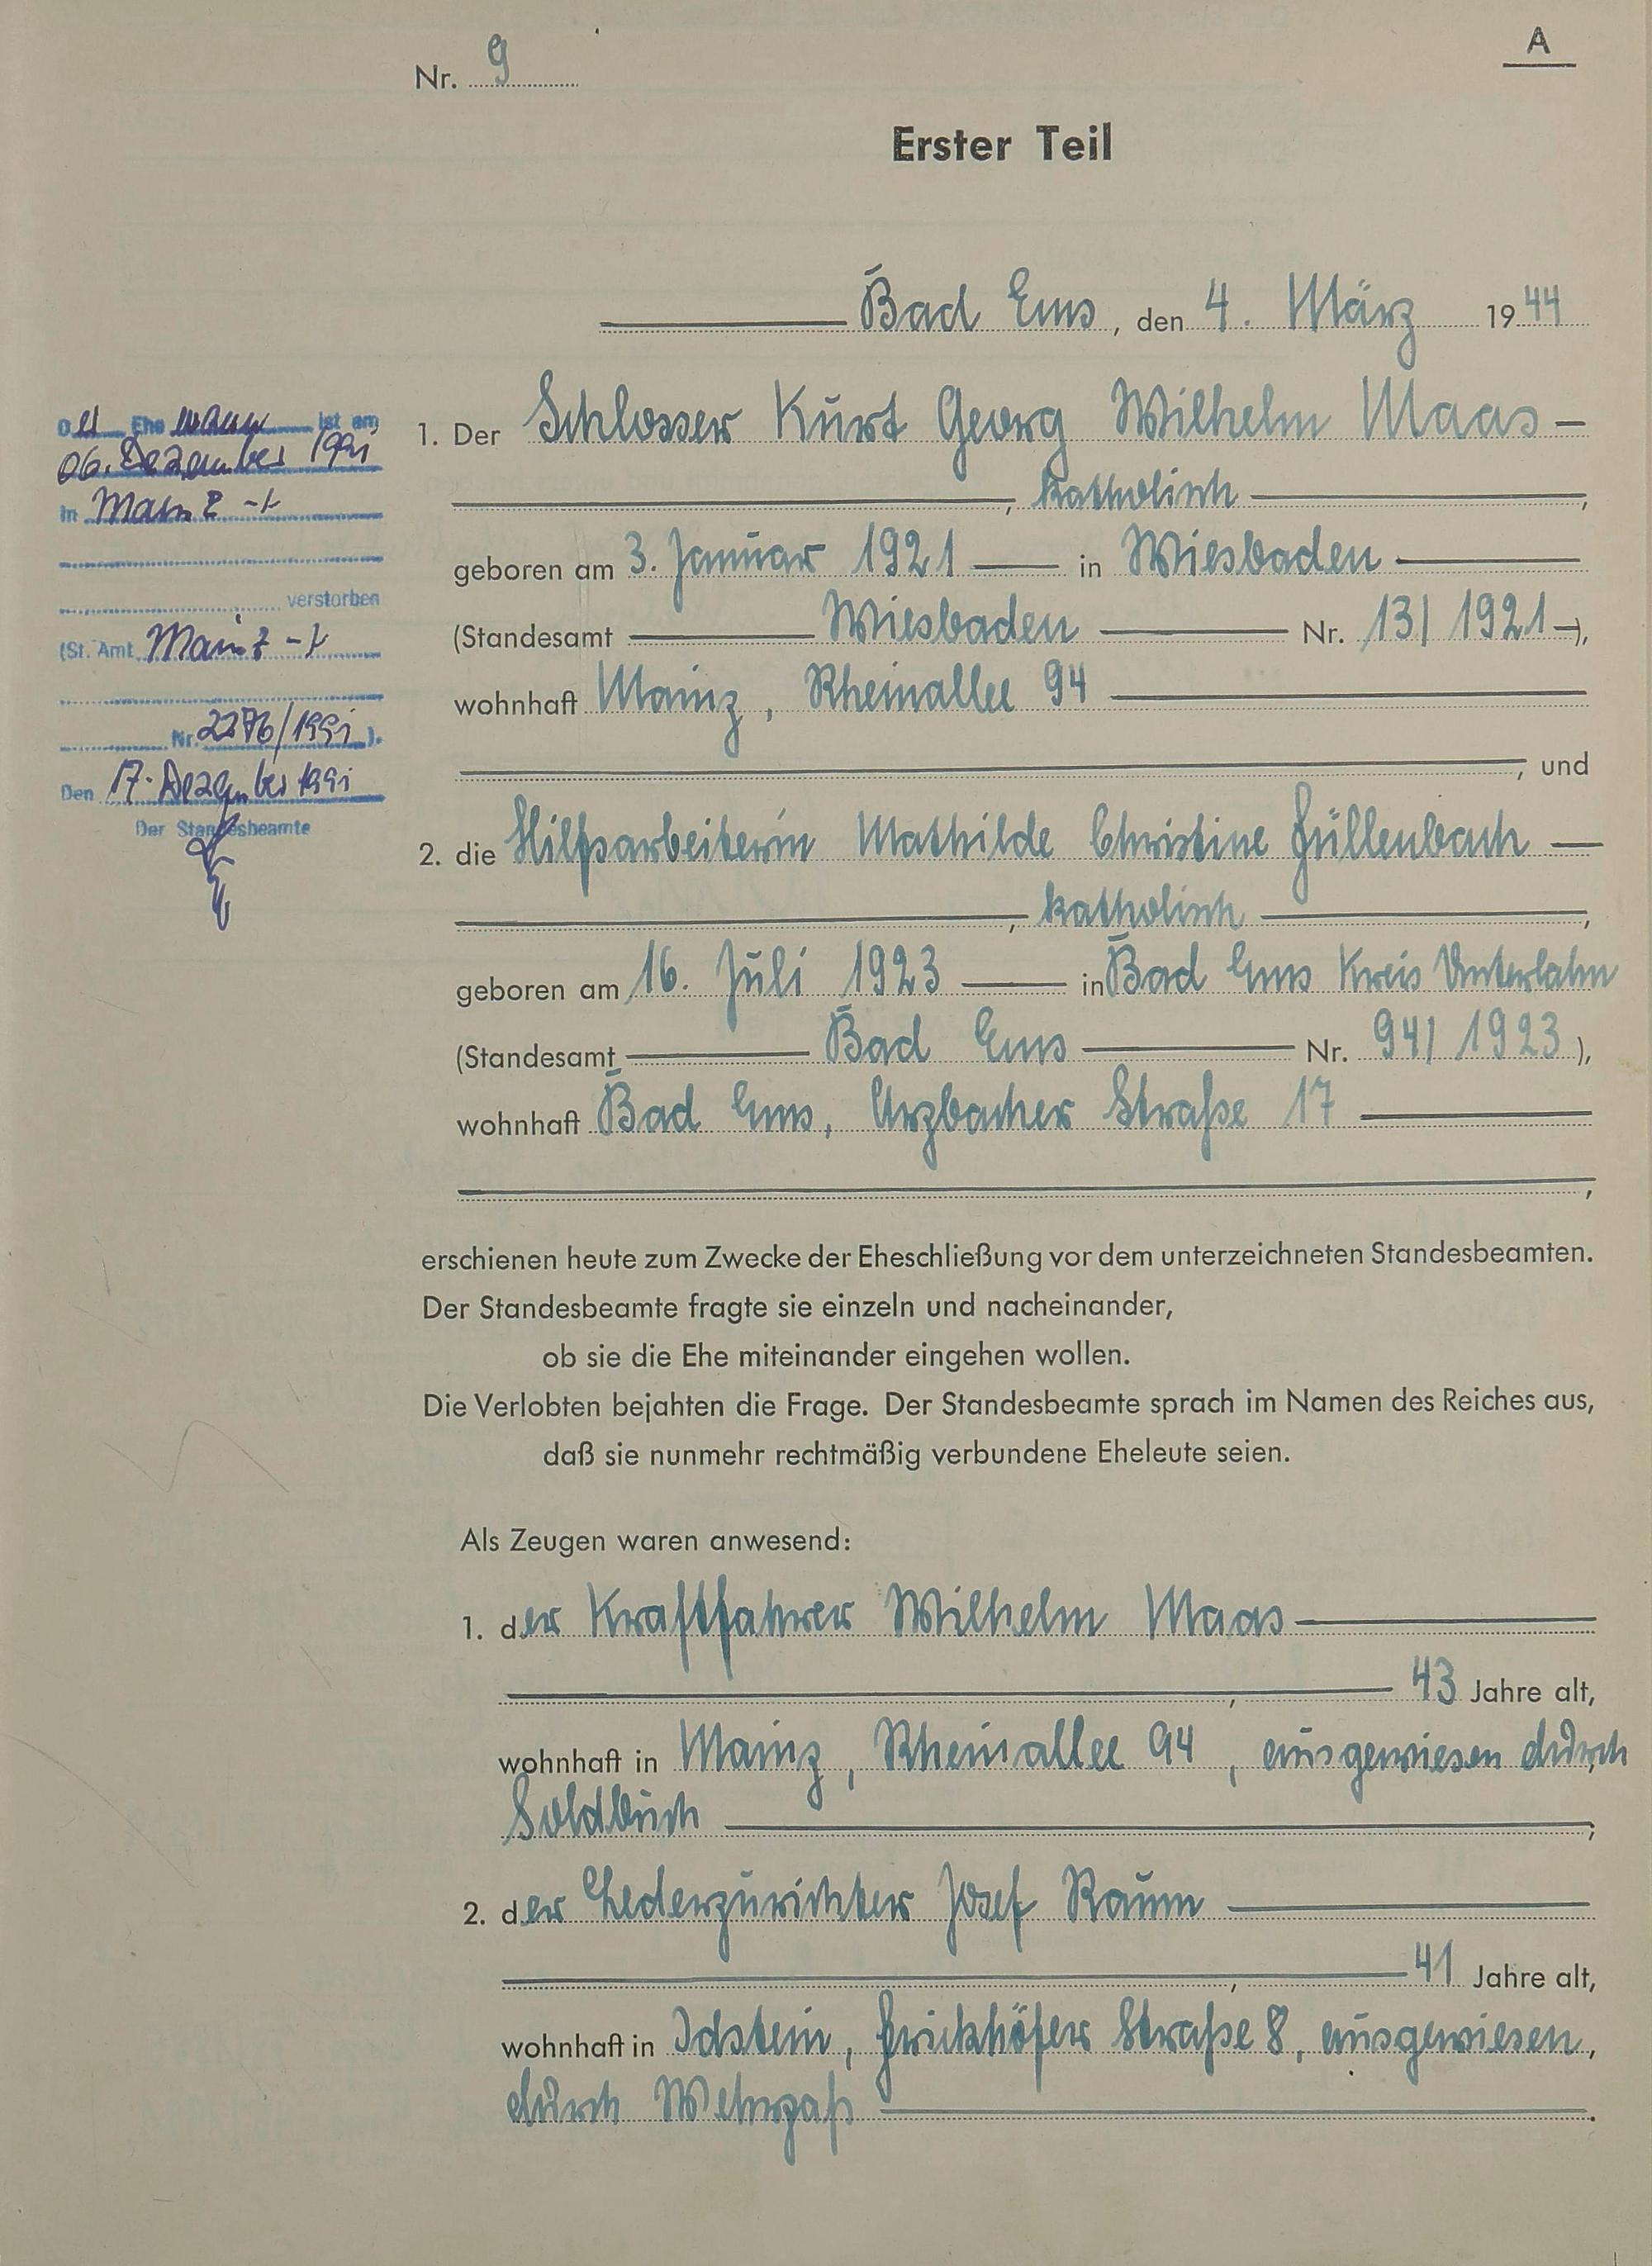 A
Nr. 9
Erster Teil
Bad Ems, den 4. März 1944
Der Ehemann ist am
06. Dezember 1991
in Mainz -/-
verstorben
(St. Amt Mainz -/-
Nr. 2276/1991).
Den 17. Dezember 1991
Der Standesbeamte
1. Der Schlosser Kurt Georg Wilhelm Maas
, katholisch ,
geboren am 3. Januar 1921 in Wiesbaden
(Standesamt Wiesbaden Nr. 13/1921),
wohnhaft Mainz, Rheinallee 94
, und
2. die Hilfsarbeiterin Mathilde Christine Füllenbach
, katholisch ,
geboren am 16. Juli 1923 in Bad Ems Kreis Unterlahn
(Standesamt Bad Ems Nr. 94/1923),
wohnhaft Bad Ems, Arzbacher Straße 17
,
erschienen heute zum Zwecke der Eheschließung vor dem unterzeichneten Standesbeamten.
Der Standesbeamte fragte sie einzeln und nacheinander,
ob sie die Ehe miteinander eingehen wollen.
Die Verlobten bejahten die Frage. Der Standesbeamte sprach im Namen des Reiches aus,
daß sie nunmehr rechtmäßig verbundene Eheleute seien.
Als Zeugen waren anwesend:
1. der Kraftfahrer Wilhelm Maas
, 43 Jahre alt,
wohnhaft in Mainz, Rheinallee 94, ausgewiesen durch
Soldbuch ;
2. der Lederzurichter Josef Raum
, 41 Jahre alt,
wohnhaft in Idstein, Frickhöfer Straße 8, ausgewiesen,
durch Wehrpaß .